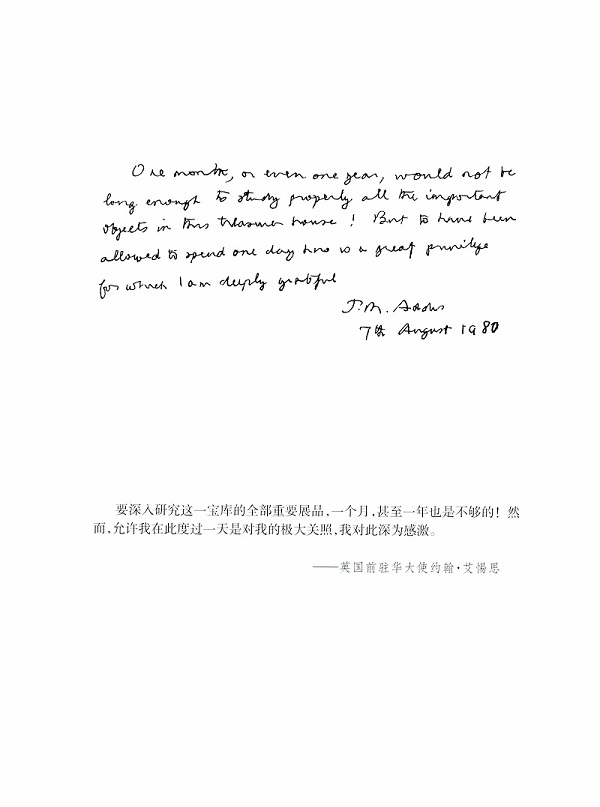 One month, or even one year, would not be
long enough to study properly all the important
objects in this treasure house! But to have been
allowed to spend one day here is a great privilege
for which I am deeply grateful
J. M. Addis
7th August 1980
要深入研究这一宝库的全部重要展品,一个月,甚至一年也是不够的!然
而,允许我在此度过一天是对我的极大关照,我对此深为感激。
——英国前驻华大使约翰·艾惕思